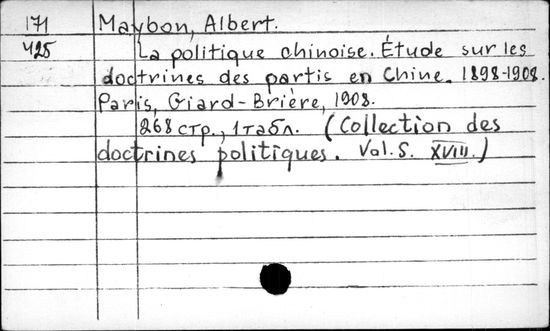 171 Maybon, Albert.
425 La politique chinoise. Étude sur les
doctrines des partis en Chine. 1898-1908.
Paris, Giard-Brière, 1908.
268 стр., 1 табл. (Collection des
doctrines politiques. Vol. S. XVIII.)